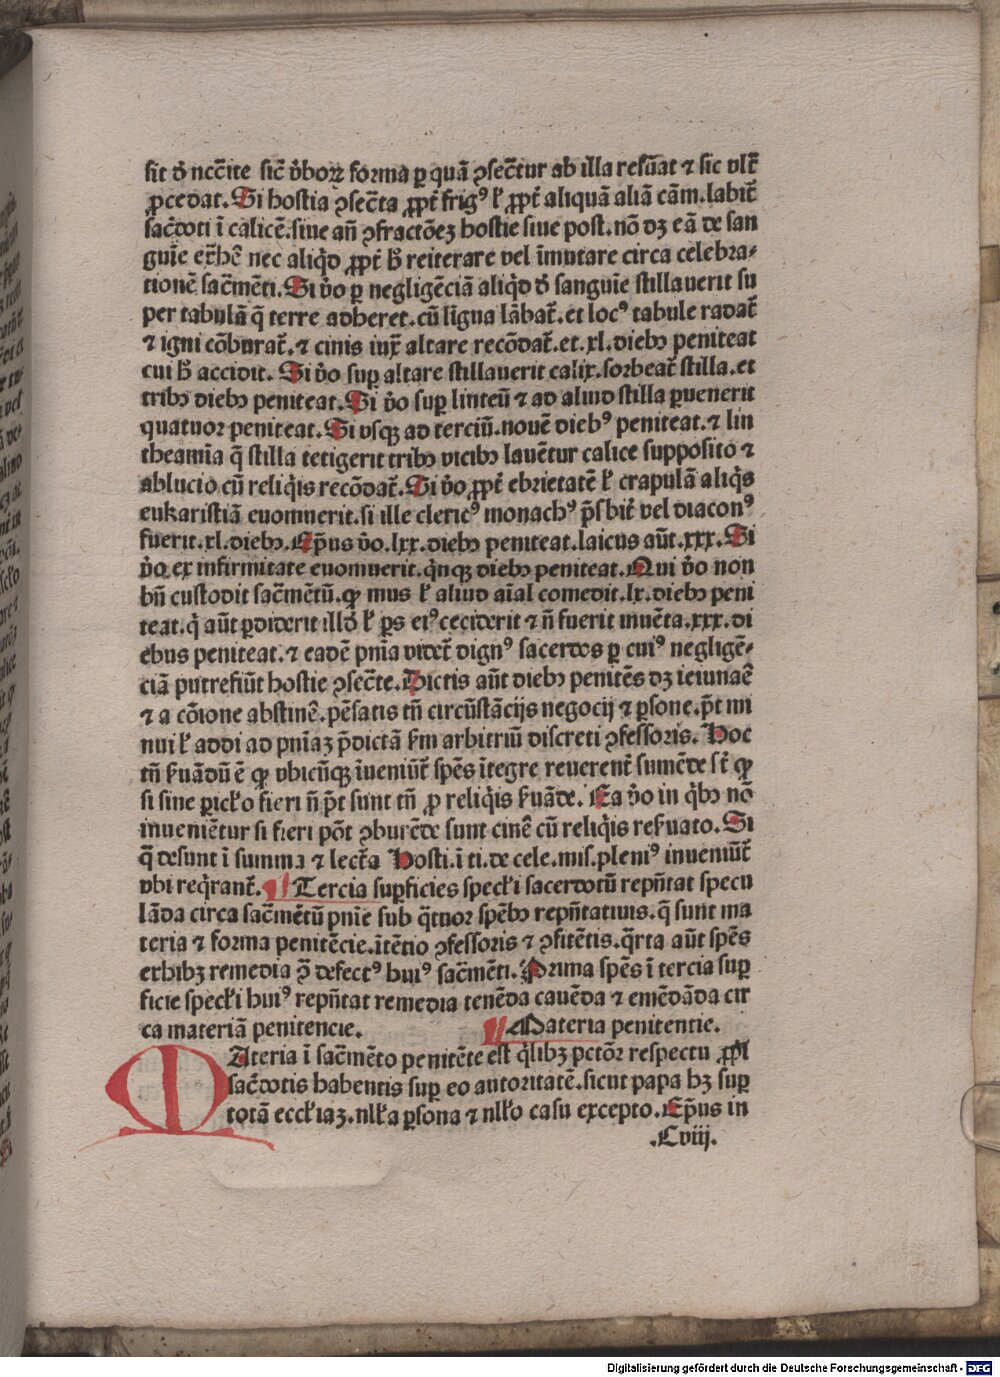 sit đ nc̄cite sic̄ v̓boꝝ forma ꝑ quā ↄsec̄tur ab illa resūat ⁊ sic vlt̄
ꝓcedat. Si hostia ↄsec̄ta ꝓpt̄ frigꝰ ł ꝓpt̄ aliquā aliā cām. labit̄
sac̄doti ī calicē. siue an̄ ↄfractōeꝫ hostie siue post. nō dꝫ eā de san
guīe ex̄hē nec aliqd̓ ꝓpt̄ h̄ reiterare vel īmutare circa celebra⸗
tionē sac̄mēti. Si v̓o ꝑ negligēciā aliqd̓ đ sanguīe stillauerit su
per tabulā q̄ terre adheret. cū līgua lābat̄. et locꝰ tabule radat̄
⁊ igni cōburat̄. ⁊ cinis iux̄ altare recōdat̄. et. xl. diebꝫ peniteat
cui h̄ accidit. Si v̓o suꝑ altare stillauerit calix. sorbeat̄ stilla. et
tribꝫ diebꝫ peniteat. Si v̓o suꝑ linteū ⁊ ad aliud stilla ꝑuenerit
quatuor peniteat. Si vsqꝫ ad terciū. nouē diebꝰ peniteat. ⁊ lin
theamīa q̄ stilla tetigerit tribꝫ vicibꝫ lauētur calice supposito ⁊
ablucio cū reliqis recōdat̄. Si v̓o ꝓpt̄ ebrietatē ł crapulā aliqs
eukaristiā euomuerit. si ille clericꝰ monachꝰ p̄sbit̄ vel diaconꝰ
fuerit. xl. diebꝫ. Ep̄us v̓o. lxx. diebꝫ peniteat. laicus aūt. xxx. Si
v̓o ex infirmitate euomuerit. qnqꝫ diebꝫ peniteat. Qui v̓o non
bn̄ custodit sac̄mētū. ꝙ mus ł aliud aīal comedit. lx. diebꝫ peni
teat. q̓ aūt ꝑdiderit illđ ł ꝑs eiꝰ ceciderit ⁊ n̄ fuerit inuēta. xxx. di
ebus peniteat. ⁊ eadē pn̄ia videt̄ dignꝰ sacerdos ꝑ cuiꝰ negligē⸗
ciā putrefiūt hostie ↄsec̄te. Dictis aūt diebꝫ penitēs dꝫ ieiunaē
⁊ a cōione abstinē. pēsatis tn̄ circūstācijs negocij ⁊ ꝑsone. p̄t mi
nui ł addi ad pn̄iaꝫ p̄dictā ẜm arbitriū discreti ↄfessoris. Hoc
tn̄ ẜuādū ē ꝙ vbicūqꝫ īueniūt̄ spēs ītegre reuerent̄ sumēde st̄ ꝙ
si sine ꝑicło fieri n̄ p̄t sunt tn̄ ꝓ reliqis ẜuāde. Ea v̓o in qbꝫ nō
inueniētur si fieri pōt ↄburēde sunt cinē cū reliqis reẜuato. Si
q̄ desunt ī summa ⁊ lect̄a Hosti. ī ti. de cele. mis. pleniꝰ inueniūt̄
vbi reqrant̄. ¶ Tercia suꝑficies specłi sacerdotū repn̄tat specu
lāda circa sac̄mētū pnīe sub q̄tuor spēbꝫ repn̄tatiuis. q̄ sunt ma
teria ⁊ forma penitēcie. ītētio ↄfessoris ⁊ ↄfitētis. q̄rta aūt spēs
exhibꝫ remedia ꝯ̄ defectꝰ huiꝰ sac̄mēti. Prima spēs ī tercia suꝑ
ficie specłi huiꝰ repn̄tat remedia tenēda cauēda ⁊ emēdāda cir
ca materiā penitencie. ¶ Materia penitentie.
MAteria ī sac̄mēto penitēte est qlibꝫ pctōr respectu ꝓpī
sac̄dotis habentis suꝑ eo autoritatē. sicut papa hꝫ suꝑ
totā ecclīaꝫ. nlła ꝑsona ⁊ nlło casu excepto. Ep̄us in
.Cviij.
Digitalisierung gefördert durch die Deutsche Forschungsgemeinschaft - DFG